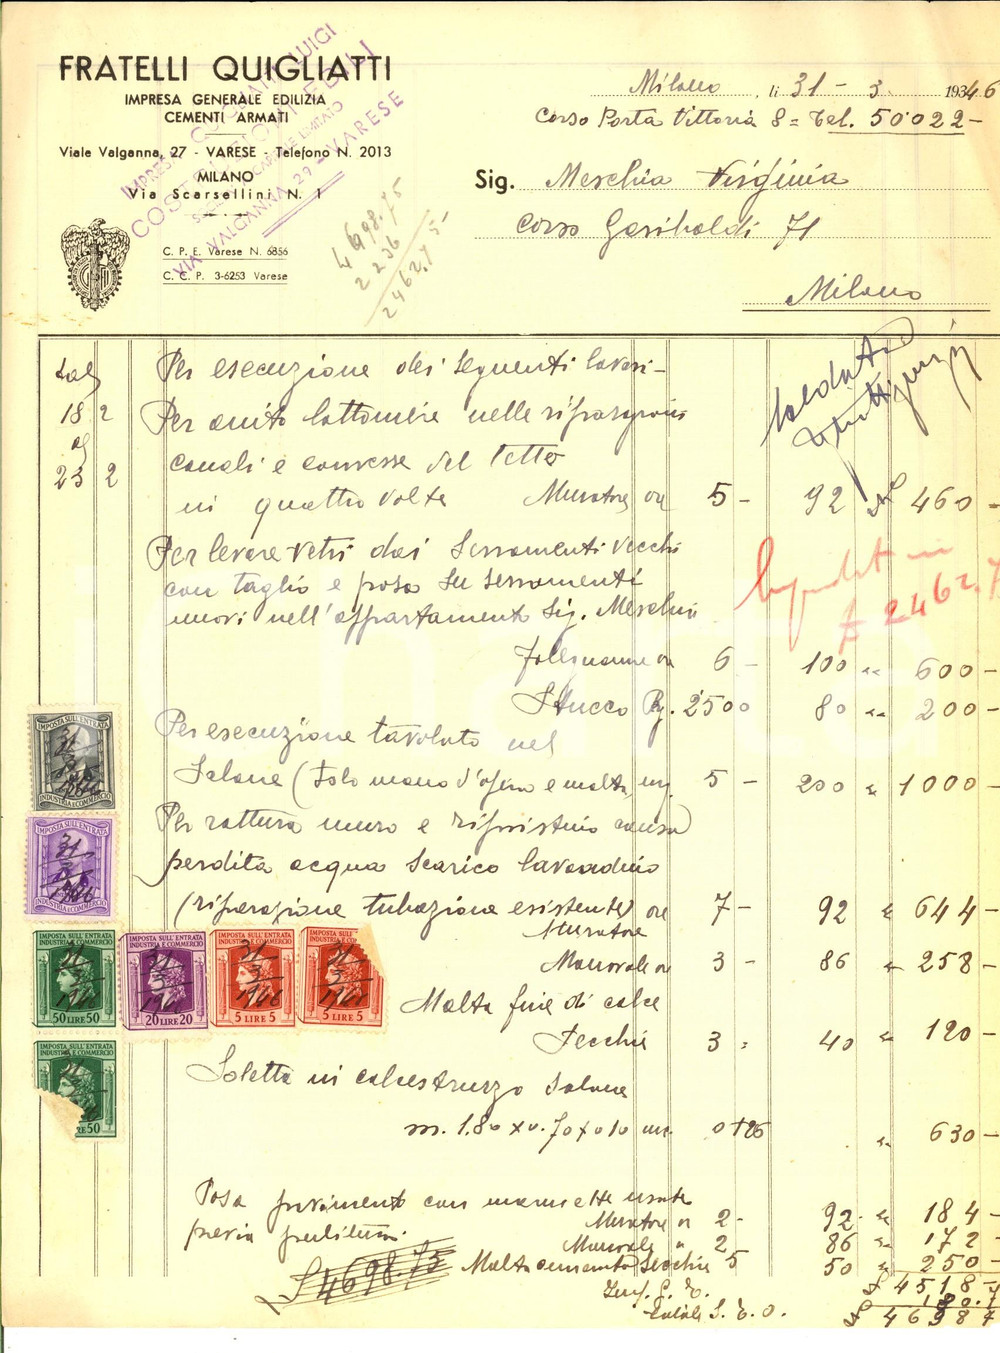 FRATELLI QUIGLIATTI
IMPRESA GENERALE EDILIZIA
CEMENTI ARMATI
Viale Valganna, 27 - VARESE - Telefono N. 2013
MILANO
Via Scarsellini N. 1
C. P. E. Varese N. 6856
C. C. P. 3-6253 Varese
COSTRUZIONI EDILI
VIA VALGANNA 29 - VARESE
4698.75
2236
2462.75
Milano li 31 - 3 1946
Corso Porta Vittoria 8 = Tel. 50022 -
Sig. Meschia Virginia
Corso Garibaldi 71
Milano
Dal 18 2 al 23 2
Per esecuzione dei seguenti lavori -
Per aiuto lattoniere nelle riparazioni
canali e converse del tetto
in quattro volte Muratore ore 5 - 92 £ 460 -
Per levare vetri dai serramenti vecchi
con taglio e posa su serramenti
nuovi nell'appartamento Sig. Meschia
Falegname ore 6 - 100 " 600 -
Stucco Kg. 2500 80 " 200 -
Liquidata in
£ 2462.7
Per esecuzione tavolato nel
Salone (solo mano d'opera e malta) mq. 5 - 200 " 1000 -
Per rottura muro e ripristino causa
perdita acqua scarico lavandino
(riparazione tubazione esistente) ore 7 - 92 " 644 -
Muratore
Manovale ore 3 - 86 " 258 -
Malta fine di calce
Secchie 3 = 40 " 120 -
Soletta in calcestruzzo salone
m. 1.80 x 0.70 x 0.10 mc. 0 126 " 630 -
Posa pavimento con marmette usate
previa pulitura.
Muratore ore 2 - 92 " 184 -
Manovale " 2 - 86 " 172 -
Malta cemento secchie 5 50 " 250 -
£ 4698.75
£ 4518 -
Imp. G. E.
Totale S. E. O.
IMPOSTA SULL'ENTRATA
31
3
1946
INDUSTRIA E COMMERCIO
IMPOSTA SULL'ENTRATA
31
3
1946
INDUSTRIA E COMMERCIO
IMPOSTA SULL'ENTRATA
INDUSTRIA E COMMERCIO
31
3
1946
50 LIRE 50
IMPOSTA SULL'ENTRATA
INDUSTRIA E COMMERCIO
31
3
1946
20 LIRE 20
IMPOSTA SULL'ENTRATA
INDUSTRIA E COMMERCIO
31
3
1946
5 LIRE 5
IMPOSTA SULL'EN
INDUSTRIA E CO
31
3
1946
5 LIRE 5
IMPOSTA SULL'ENTRATA
INDUSTRIA E COMMERCIO
31
3
RE 50